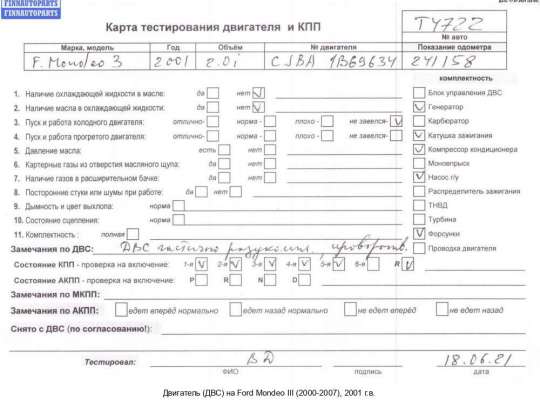 FINNAUTOPARTS
FINNAUTOPARTS
Карта тестирования двигателя и КПП
TY722
№ авто
Марка, модель Год Объём № двигателя Показание одометра
F. Mondeo 3 2001 2.0i CJBA 1B69634 241158
комплектность
1. Наличие охлаждающей жидкости в масле: да нет V
Блок управления ДВС
2. Наличие масла в охлаждающей жидкости: да нет V
V Генератор
3. Пуск и работа холодного двигателя: отлично- норма - плохо - не завелся- V
Карбюратор
4. Пуск и работа прогретого двигателя: отлично- норма - плохо - не завелся-
V Катушка зажигания
5. Давление масла: есть нет
V Компрессор кондиционера
6. Картерные газы из отверстия масляного щупа: да нет
Моновпрыск
7. Наличие газов в расширительном бачке: да нет
V Насос г/у
8. Посторонние стуки или шумы при работе: да нет
Распределитель зажигания
9. Дымность и цвет выхлопа: норма
ТНВД
10. Состояние сцепления: норма
Турбина
11. Комплектность : полная
V Форсунки
Замечания по ДВС: ДВС частично разукомпл.,
Проводка двигателя
Состояние КПП - проверка на включение: 1-я V 2-я V 3-я V 4-я V 5-я V 6-я R V
Состояние АКПП - проверка на включение: P R N D
Замечания по МКПП:
Замечания по АКПП: едет вперёд нормально едет назад нормально не едет вперёд не едет назад
Снято с ДВС (по согласованию!):
Тестировал: ВД 18.06.21
ФИО подпись дата
Двигатель (ДВС) на Ford Mondeo III (2000-2007), 2001 г.в.